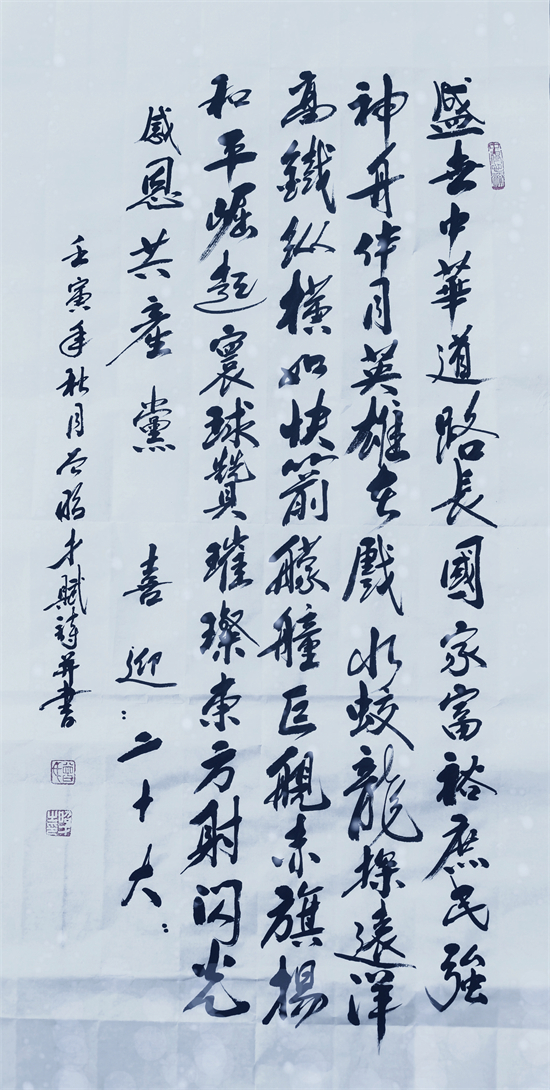 盛世中華道路長國家富裕庶民強
神舟伴月英雄在戲水蛟龍探遠洋
高鐵纵橫如快箭艨艟巨舰赤旗揚
和平崛起寰球贊璀璨東方射閃光
感恩共產黨 喜迎:二十大:
壬寅年秋月曾昭才賦詩并書